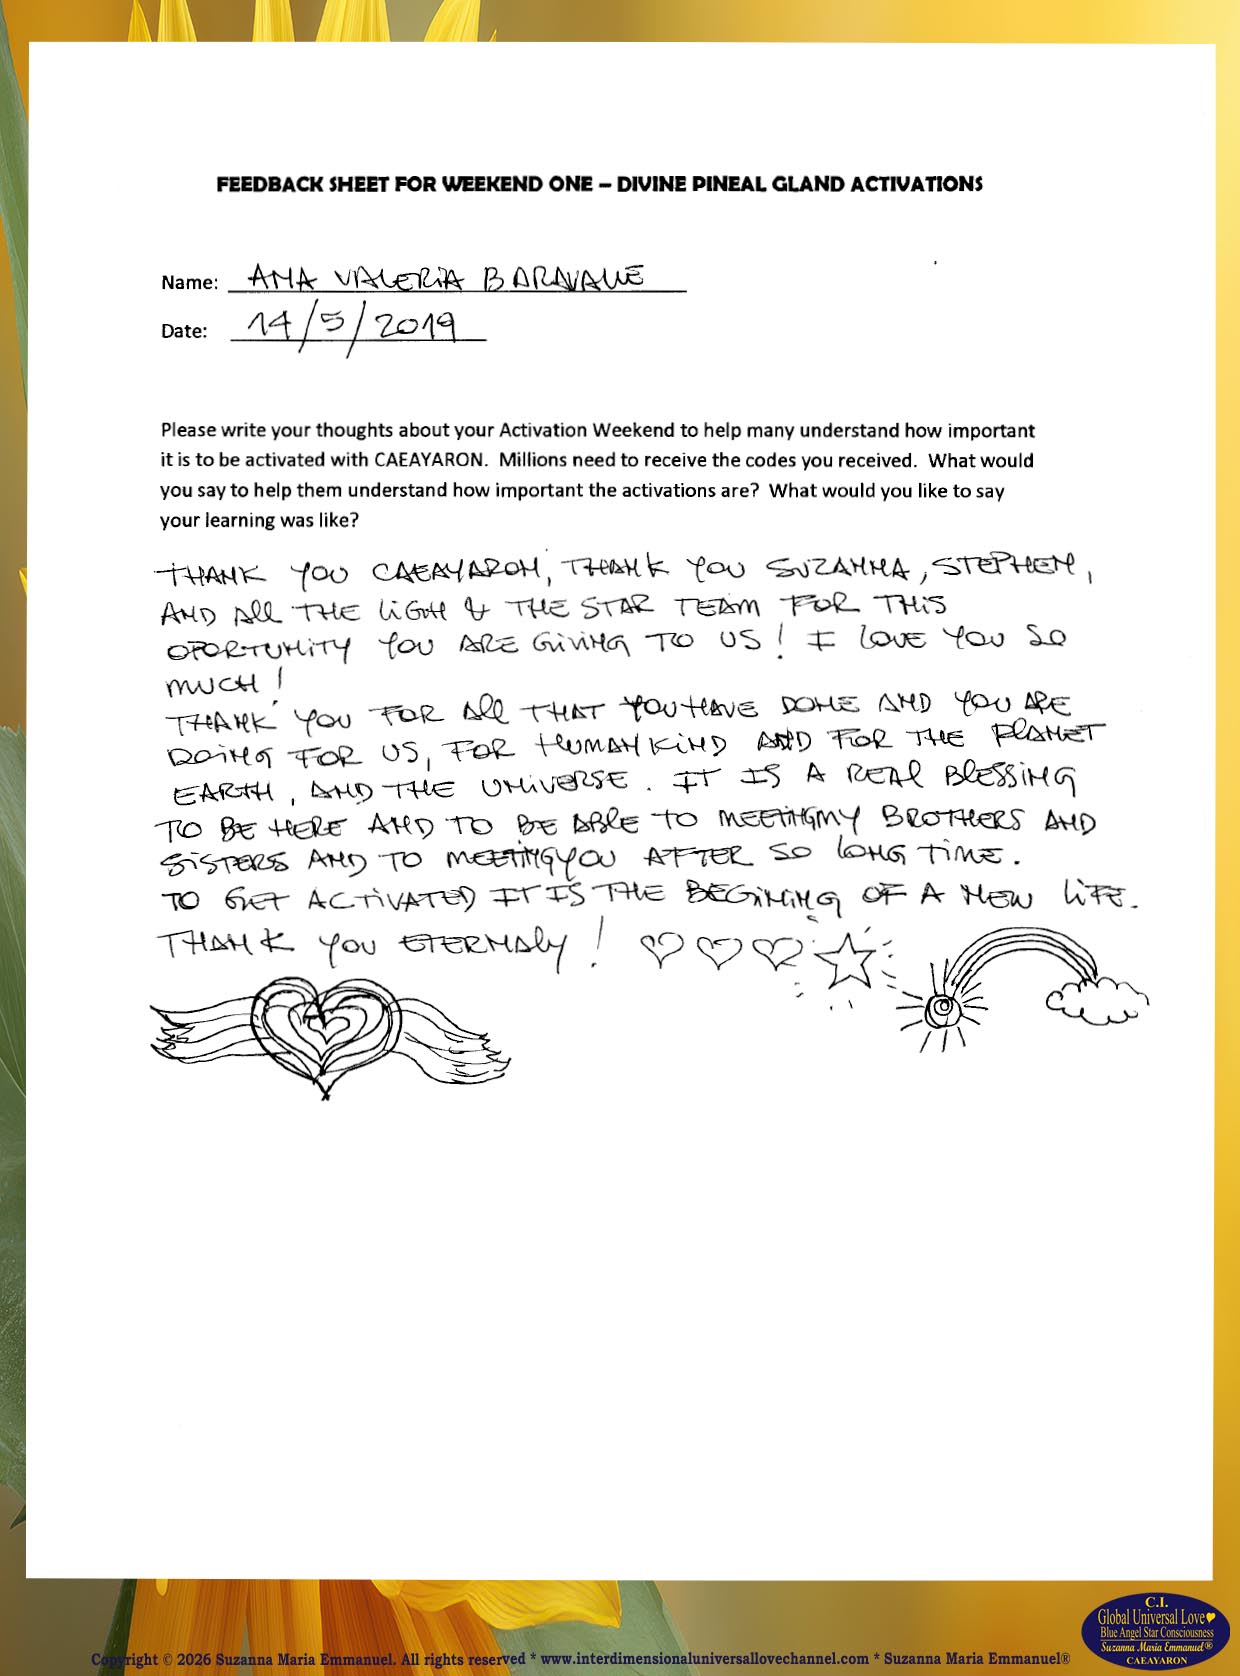 FEEDBACK SHEET FOR WEEKEND ONE – DIVINE PINEAL GLAND ACTIVATIONS
Name: ANA VALERIA BARAVALLE
Date: 14/5/2019
Please write your thoughts about your Activation Weekend to help many understand how important
it is to be activated with CAEAYARON.  Millions need to receive the codes you received.  What would
you say to help them understand how important the activations are?  What would you like to say
your learning was like?
THANK YOU CAEAYARON, THANK YOU SUZANNA, STEPHEN,
AND All THE LiGH & THE STAR TEAM FOR THIS
OPORTUNiTY YOU ARE GiViNG TO US! I LOVE YOU SO
MUCH!
THANK YOU FOR All THAT YOU HAVE DONE AND YOU ARE
DOiNG FOR US, FOR HUMANKiND AND FOR THE PLANET
EARTH, AND THE UNiVERSE. IT IS A REAL BLESSiNG
TO BE HERE AND TO BE ABLE TO MEETiNG MY BROTHERS AND
SiSTERS AND TO MEETiNG YOU AFTER SO LONG TiME.
TO GET ACTiVATED IT IS THE BEGiNiNG OF A NEW LiFE.
THANK YOU ETERNALY!
C.I.
Global Universal Love
Blue Angel Star Consciousness
Suzanna Maria Emmanuel®
CAEAYARON
Copyright © 2026 Suzanna Maria Emmanuel. All rights reserved * www.interdimensionaluniversallovechannel.com * Suzanna Maria Emmanuel®